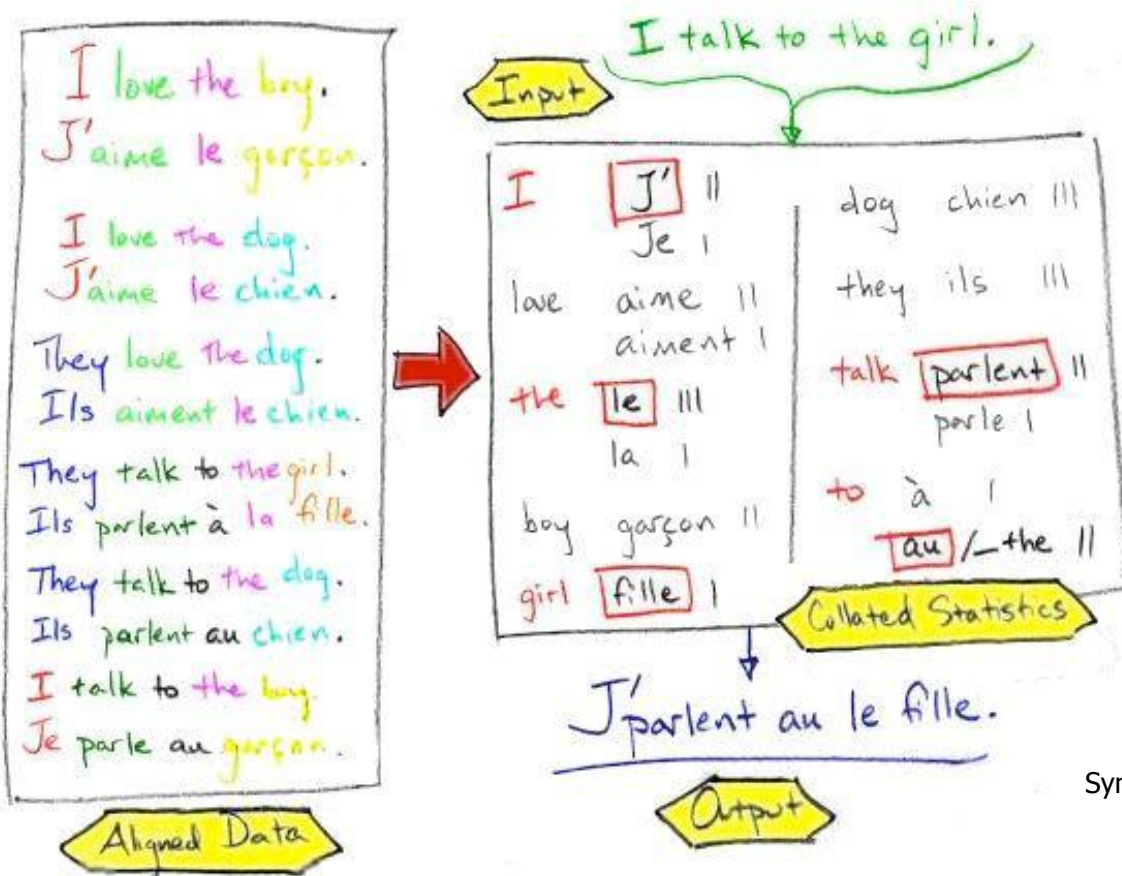 I love the boy.
J'aime le garçon.
I love the dog.
J'aime le chien.
They love the dog.
Ils aiment le chien.
They talk to the girl.
Ils parlent à la fille.
They talk to the dog.
Ils parlent au chien.
I talk to the boy.
Je parle au garçon.
Aligned Data
I talk to the girl.
Input
I J' ||
Je |
love aime ||
aiment |
the le |||
la |
boy garçon ||
girl fille |
dog chien |||
they ils |||
talk parlent ||
parle |
to à |
au /_the ||
Collated Statistics
J'parlent au le fille.
Output
Syn